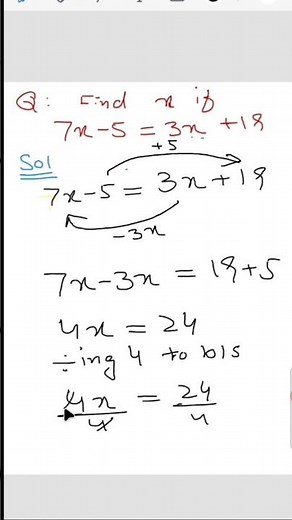 Q: Find x if
7x-5 = 3x +19
Sol
+5
7x-5 = 3x+19
-3x
7x-3x = 19+5
4x = 24
÷ing 4 to b/s
4x/4 = 24/4